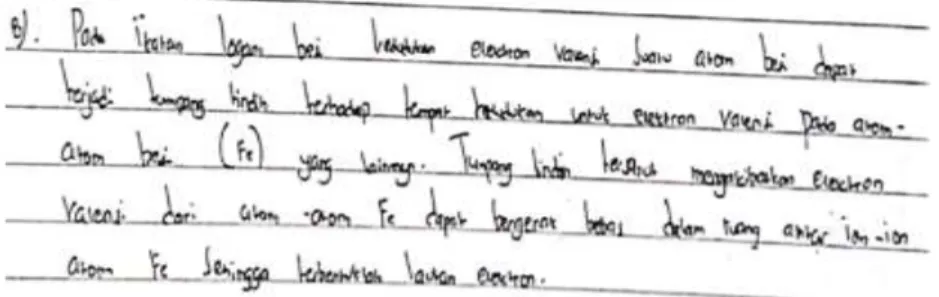 8). Pada ikatan logam besi kedudukan electron valensi suatu atom besi dapat
terjadi tumpang tindih terhadap tempat kedudukan untuk elektron valensi pada atom-
atom besi (Fe) yang lainnya. Tumpang tindih tersebut mengakibatkan electron
valensi dari atom-atom Fe dapat bergerak bebas dalam ruang antar ion-ion
atom Fe sehingga terbentuklah lautan electron.